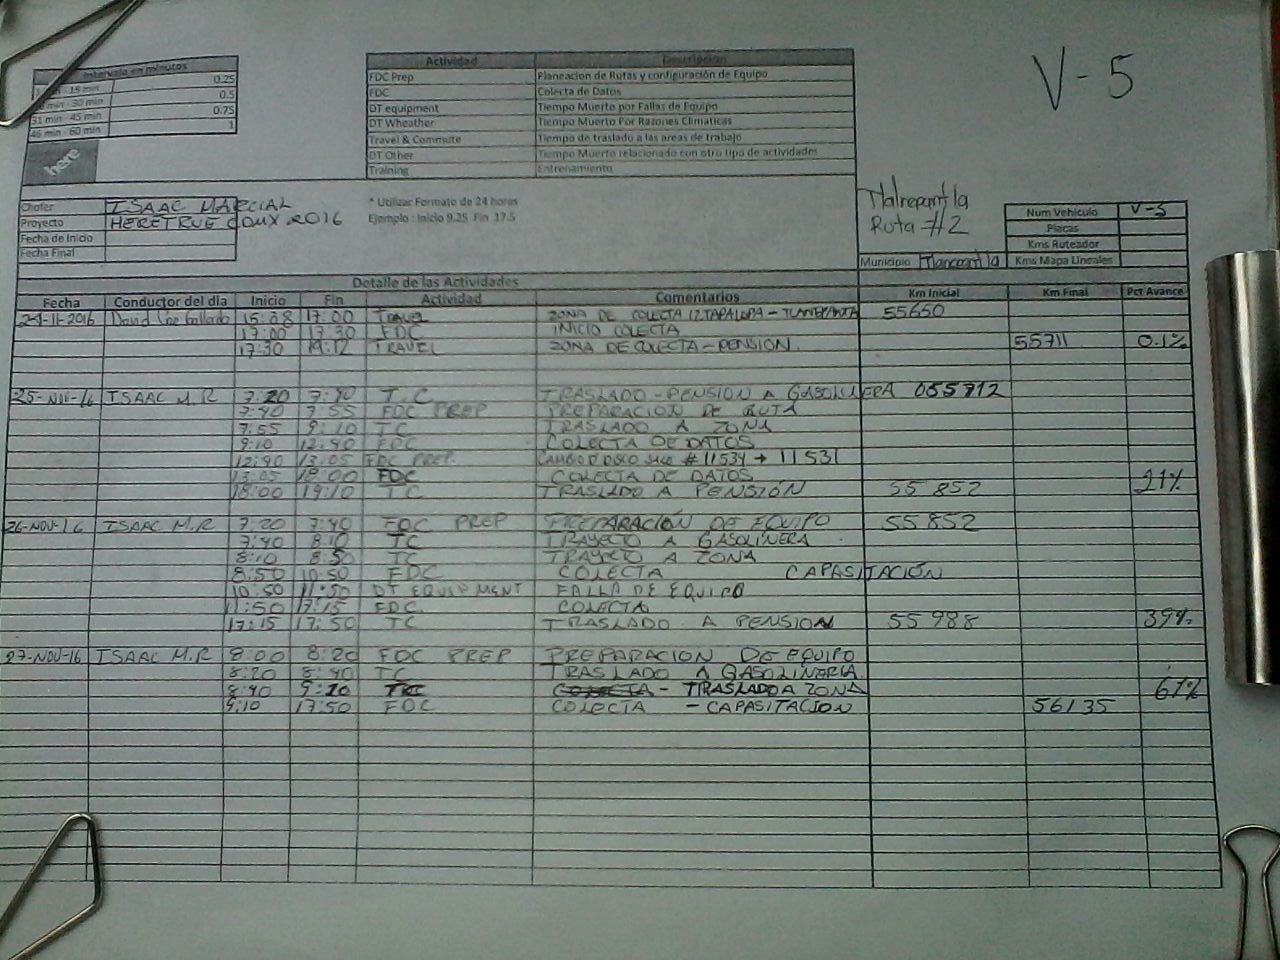 V-5
Intervalo en minutos
15 min 0.25
min - 30 min 0.5
31 min - 45 min 0.75
46 min - 60 min 1
here
Actividad Descripcion
FDC Prep Planeacion de Rutas y configuración de Equipo
FDC Colecta de Datos
DT equipment Tiempo Muerto por Fallas de Equipo
DT Wheather Tiempo Muerto Por Razones Climaticas
Travel & Commute Tiempo de traslado a las areas de trabajo
DT Other Tiempo Muerto relacionado con otro tipo de actividades
Training Entrenamiento
Chofer ISAAC MARCIAL
Proyecto HERETRUE CDMX 2016
Fecha de Inicio
Fecha Final
* Utilizar Formato de 24 horas
Ejemplo : Inicio 9.25 Fin 17.5
Tlalnepantla
Ruta #2
Municipio Tlanepantla
Num Vehiculo V-5
Placas
Kms Ruteador
Kms Mapa Lineales
Detalle de las Actividades
Fecha Conductor del dia Inicio Fin Actividad Comentarios Km Inicial Km Final Pct Avance
24-11-2016 David 15:08 17:00 TRAVEL ZONA DE COLECTA IZTAPALAPA - TLANEPANTLA 55650
17:00 17:30 FDC INICIO COLECTA
17:30 19:12 TRAVEL ZONA DE COLECTA - PENSION. 55711 0.1%
25-NOV-16 ISAAC M.R 7:20 7:40 T.C TRASLADO - PENSION A GASOLINERA 055712
7:40 7:55 FDC PREP PREPARACION DE RUTA
7:55 9:10 TC TRASLADO A ZONA
9:10 12:40 FDC COLECTA DE DATOS
12:40 13:05 FDC PREP. CAMBIO D DISCO # 11534 → 11531
13:05 18:00 FDC COLECTA DE DATOS
18:00 19:10 TC TRASLADO A PENSIÓN 55 852 21%
26-NOV-16 ISAAC M.R 7:20 7:40 FDC PREP PREPARACIÓN DE EQUIPO 55852
7:40 8:10 TC TRAYECTO A GASOLINERA
8:10 8:50 TC TRAYECTO A ZONA
8:50 10:50 FDC COLECTA CAPASITACIÓN
10:50 11:50 DT EQUIPMENT FALLA DE EQUIPO
11:50 17:15 FDC. COLECTA
17:15 17:50 TC TRASLADO A PENSION 55 988 39%
27-NOV-16 ISAAC M.R 8:00 8:20 FDC PREP PREPARACION DE EQUIPO
8:20 8:40 TC TRASLADO A GASOLINERIA
8:40 9:10 TC COLECTA - TRASLADO A ZONA 61%
9:10 17:50 FDC COLECTA - CAPASITACION 56135